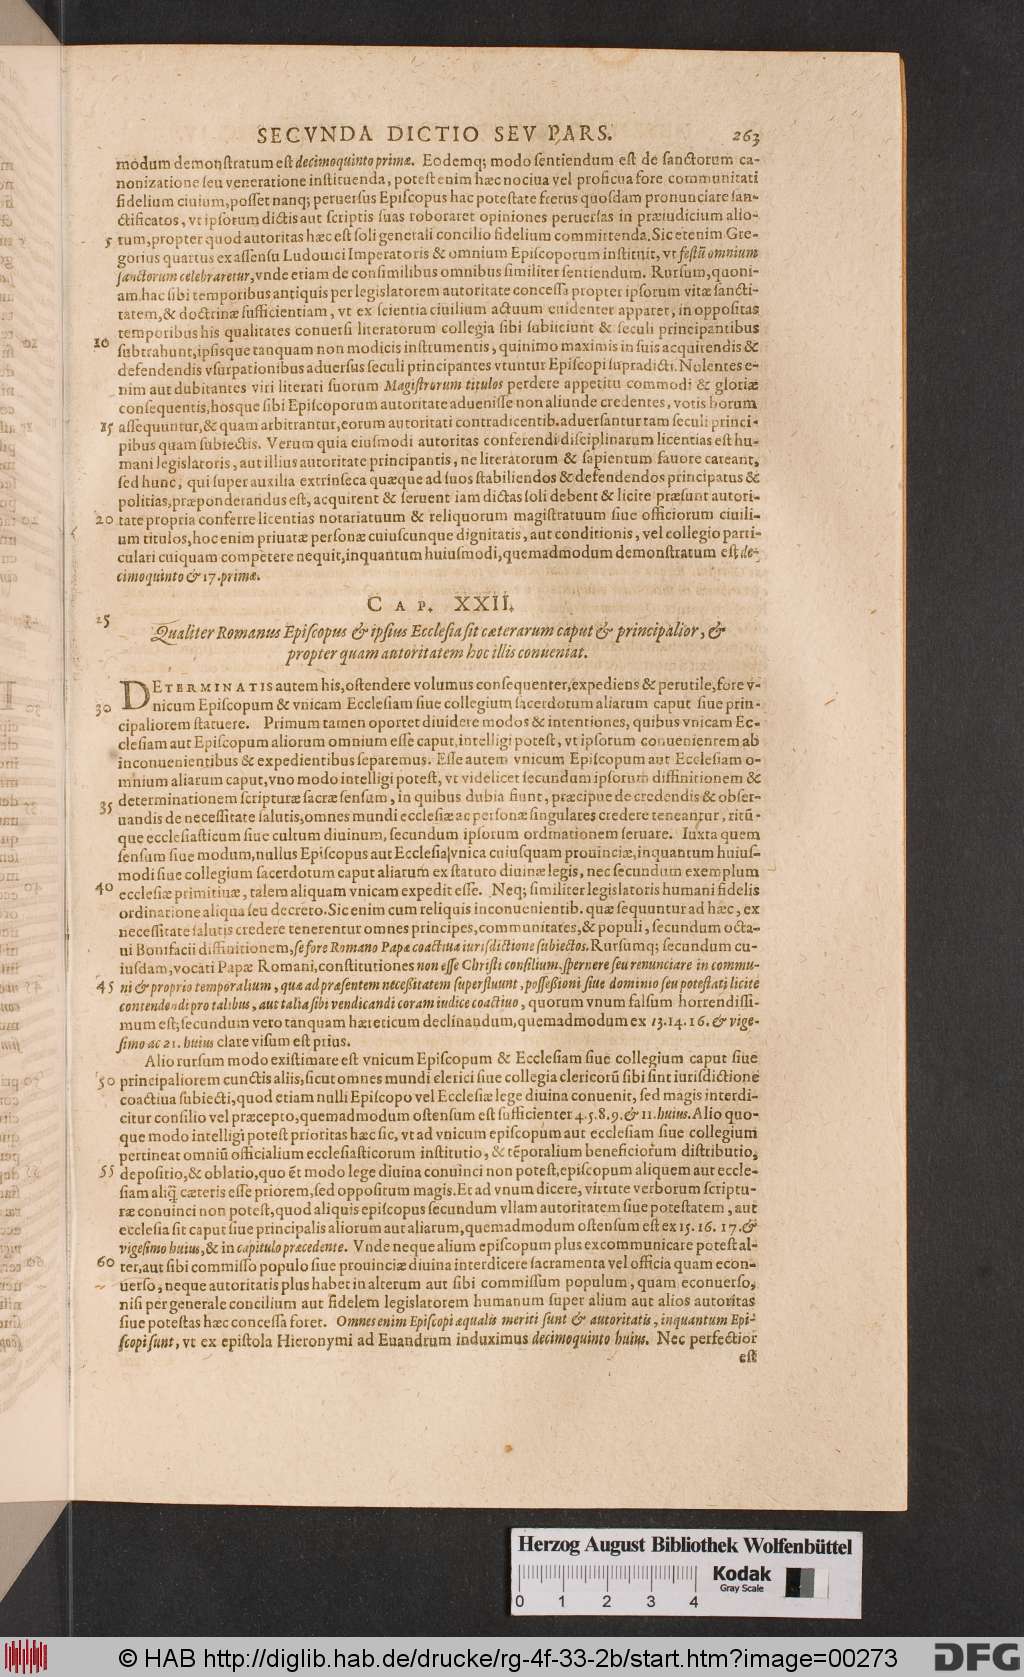 SECVNDA DICTIO SEV PARS. 263
modum demonstratum est decimoquinto primæ. Eodemq; modo sentiendum est de sanctorum ca-
nonizatione seu veneratione instituenda, potest enim hæc nociua vel proficua fore communitati
fidelium ciuium, posset nanq; peruersus Episcopus hac potestate fretus quosdam pronunciare san-
ctificatos, vt ipsorum dictis aut scriptis suas roboraret opiniones peruersas in præiudicium alio-
5 rum, propter quod autoritas hæc est soli generali concilio fidelium committenda. Sic etenim Gre-
gorius quartus ex assensu Ludouici Imperatoris & omnium Episcoporum instituit, vt festũ omnium
sanctorum celebraretur, vnde etiam de consimilibus omnibus similiter sentiendum. Rursum, quoni-
am hac sibi temporibus antiquis per legislatorem autoritate concessa propter ipsorum vitæ sancti-
tatem, & doctrinæ sufficientiam, vt ex scientia ciuilium actuum euidenter apparet, in oppositas
temporibus his qualitates conuersi literatorum collegia sibi subiiciunt & seculi principantibus
10 subtrahunt, ipsisque tanquam non modicis instrumentis, quinimo maximis in suis acquirendis &
defendendis vsurpationibus aduersus seculi principantes vtuntur Episcopi supradicti. Nolentes e-
nim aut dubitantes viri literati suorum Magistrorum titulos perdere appetitu commodi & gloriæ
consequentis, hosque sibi Episcoporum autoritate adueniſſe non aliunde credentes, votis horum
15 assequuntur, & quam arbitrantur, eorum autoritati contradicentib. aduersantur tam seculi princi-
pibus quam subiectis. Verum quia eiusmodi autoritas conferendi disciplinarum licentias est hu-
mani legislatoris, aut illius autoritate principantis, ne literatorum & sapientum fauore careant,
sed hunc, qui super auxilia extrinseca quæque ad suos stabiliendos & defendendos principatus &
politias, præponderandus est, acquirent & seruent iam dictas soli debent & licite præsunt autori-
20 tate propria conferre licentias notariatuum & reliquorum magistratuum siue officiorum ciuili-
um titulos, hoc enim priuatæ personæ cuiuscunque dignitatis, aut conditionis, vel collegio parti-
culari cuiquam competere nequit, inquantum huiusmodi, quemadmodum demonstratum est, de-
cimoquinto & 17. primæ.
CAP. XXII.
25
Qualiter Romanus Episcopus & ipsius Ecclesia sit cæterarum caput & principalior, &
propter quam autoritatem hoc illis conueniat.
DETERMINATIS autem his, ostendere volumus consequenter, expediens & perutile, fore v-
30 nicum Episcopum & vnicam Ecclesiam siue collegium sacerdotum aliarum caput siue prin-
cipaliorem statuere. Primum tamen oportet diuidere modos & intentiones, quibus vnicam Ec-
clesiam aut Episcopum aliorum omnium esse caput, intelligi potest, vt ipsorum conuenientem ab
inconuenientibus & expedientibus separemus. Esse autem vnicum Episcopum aut Ecclesiam o-
mnium aliarum caput, vno modo intelligi potest, vt videlicet secundum ipsorum diffinitionem &
35 determinationem scripturæ sacræ sensum, in quibus dubia fiunt, præcipue de credendis & obser-
uandis de necessitate salutis, omnes mundi ecclesiæ ac personæ singulares credere teneantur, ritũ-
que ecclesiasticum siue cultum diuinum, secundum ipsorum ordinationem seruare. Iuxta quem
sensum siue modum, nullus Episcopus aut Ecclesia vnica cuiusquam prouinciæ, inquantum huius-
modi siue collegium sacerdotum caput aliarum ex statuto diuinæ legis, nec secundum exemplum
40 ecclesiæ primitiuæ, talem aliquam vnicam expedit esse. Neq; similiter legislatoris humani fidelis
ordinatione aliqua seu decreto. Sic enim cum reliquis inconuenientib. quæ sequuntur ad hæc, ex
necessitate salutis credere tenerentur omnes principes, communitates, & populi, secundum octa-
ui Bonifacii diffinitionem, se fore Romano Papæ coactiua iurisdictione subiectos. Rursumq; secundum cu-
iusdam, vocati Papæ Romani, constitutiones non esse Christi consilium. spernere seu renunciare in commu-
45 ni & proprio temporalium, quæ ad præsentem necessitatem superfluunt, possessioni siue dominio seu potestati licite
contendendi pro talibus, aut talia sibi vendicandi coram iudice coactiuo, quorum vnum falsum horrendissi-
mum est; secundum vero tanquam hæreticum declinandum, quemadmodum ex 13. 14. 16. & vige-
simo ac 21. huius clare visum est prius.
Alio rursum modo existimare est vnicum Episcopum & Ecclesiam siue collegium caput siue
50 principaliorem cunctis aliis, sicut omnes mundi clerici siue collegia clericorũ sibi sint iurisdictione
coactiua subiecti, quod etiam nulli Episcopo vel Ecclesiæ lege diuina conuenit, sed magis interdi-
citur consilio vel præcepto, quemadmodum ostensum est sufficienter 4. 5. 8. 9. & 11. huius. Alio quo-
que modo intelligi potest prioritas hæc sic, vt ad vnicum episcopum aut ecclesiam siue collegium
pertineat omniũ officialium ecclesiasticorum institutio, & tẽporalium beneficiorum distributio,
55 depositio, & oblatio, quo ẽt modo lege diuina conuinci non potest, episcopum aliquem aut eccle-
siam aliq̃ cæteris esse priorem, sed oppositum magis. Et ad vnum dicere, virtute verborum scriptu-
ræ conuinci non potest, quod aliquis episcopus secundum vllam autoritatem siue potestatem, aut
ecclesia sit caput siue principalis aliorum aut aliarum, quemadmodum ostensum est ex 15. 16. 17. &
vigesimo huius, & in capitulo præcedente. Vnde neque alium episcopum plus excommunicare potest al-
60 ter, aut sibi commisso populo siue prouinciæ diuina interdicere sacramenta vel officia quam econ-
uerso, neque autoritatis plus habet in alterum aut sibi commissum populum, quam econuerso,
nisi per generale concilium aut fidelem legislatorem humanum super alium aut alios autoritas
siue potestas hæc concessa foret. Omnes enim Episcopi æqualis meriti sunt & autoritatis, inquantum Epi-
scopi sunt, vt ex epistola Hieronymi ad Euandrum induximus decimoquinto huius. Nec perfectior
est
Herzog August Bibliothek Wolfenbüttel
Kodak
Gray Scale
0 1 2 3 4
© HAB http://diglib.hab.de/drucke/rg-4f-33-2b/start.htm?image=00273
DFG